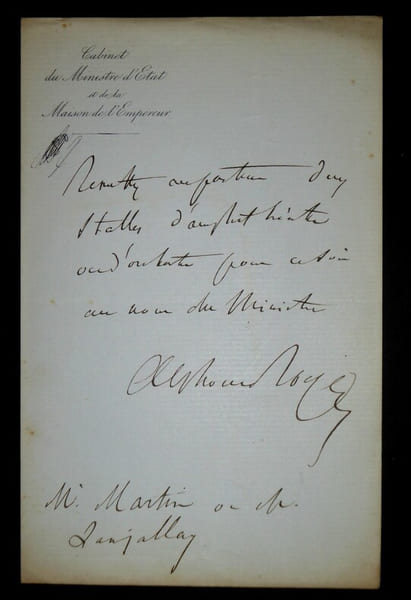 Cabinet
du Ministre d'Etat
et de la
Maison de l'Empereur
Remettez au porteur deux
stalles d'amphithéâtre
ou d'orchestre pour ce soir
au nom du Ministre
Alphonse Royer
Mr. Martin ou M.